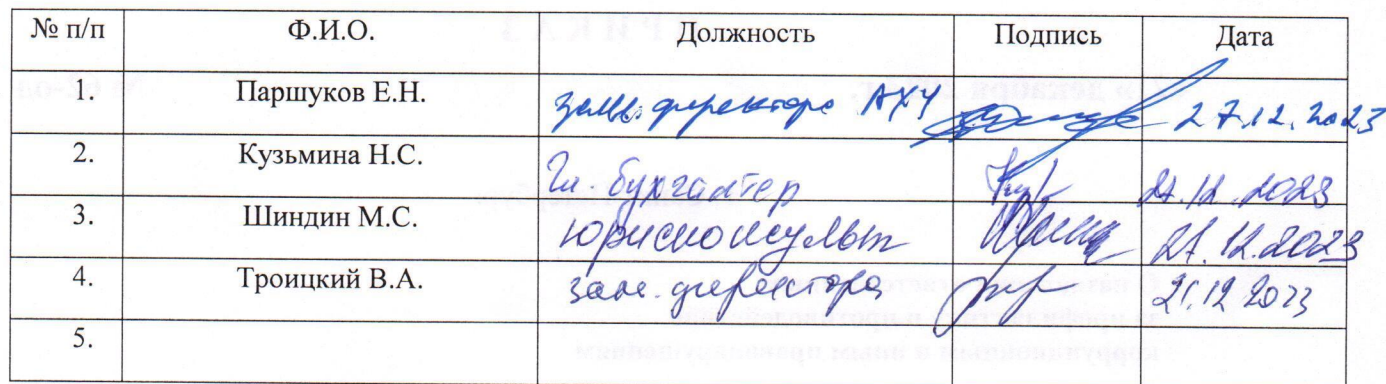 № п/п Ф.И.О. Должность Подпись Дата
1. Паршуков Е.Н. зам. директора АХЧ 27.12.2023
2. Кузьмина Н.С. Гл бухгалтер 27.12.2023
3. Шиндин М.С. юрисконсульт 27.12.2023
4. Троицкий В.А. зам. директора 21.12.2023
5.